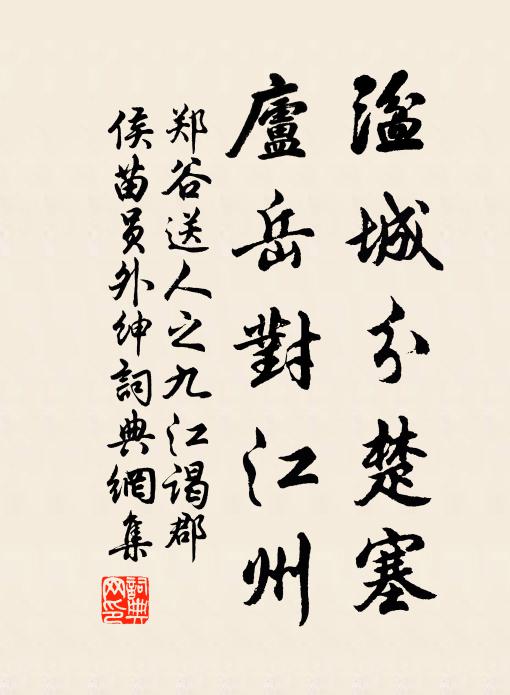 湓城分楚塞
廬岳對江州
郑谷送人之九江谒郡
侯苗员外紳詞典網集
詞典网印